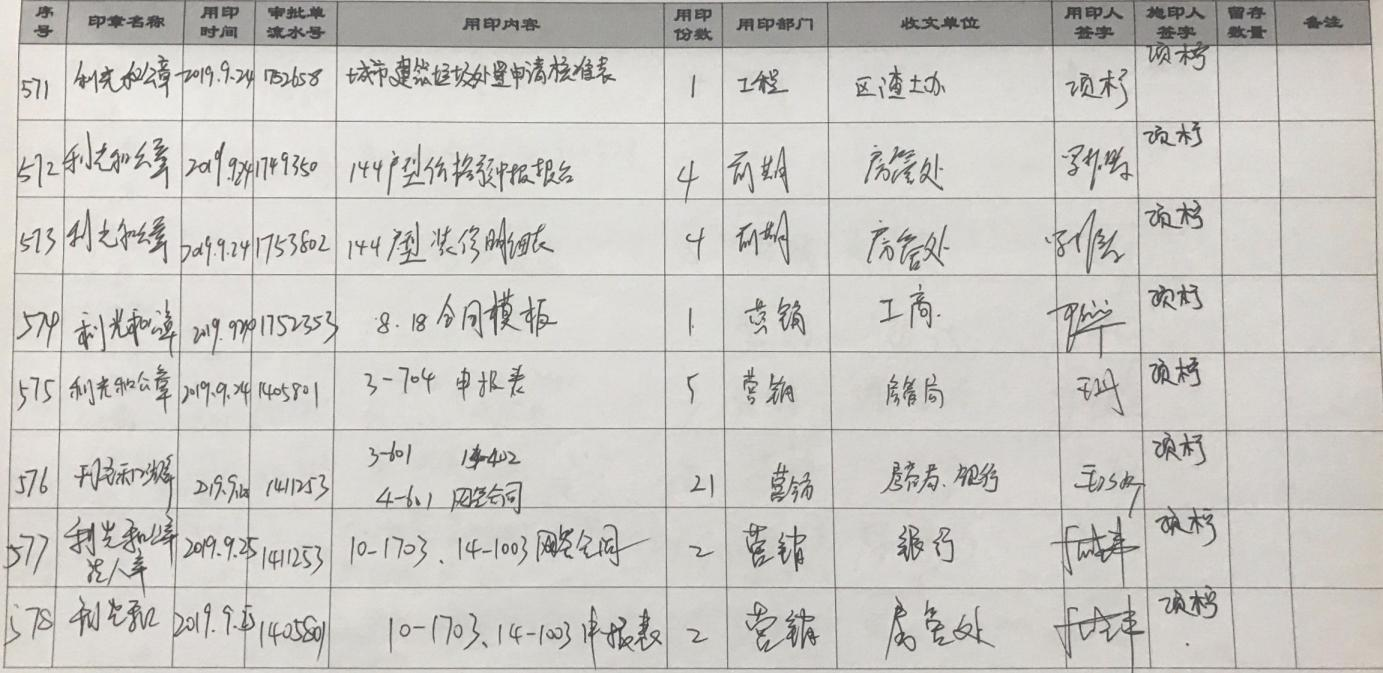 序号 印章名称 用印时间 审批单流水号 用印内容 用印份数 用印部门 收文单位 用印人签字 施印人签字 留存数量 备注
571 利光和公章 2019.9.24 1752658 城市建筑垃圾处置申请核准表 1 工程 区渣土办 项杉 项杉
572 利光和公章 2019.9.24 1749350 144户型价格预申报报告 4 前期 房管处 项杉
573 利光和公章 2019.9.24 1753802 144户型装修明细表 4 前期 房管处 项杉
574 利光和公章 2019.9.24 1752353 8.18合同模板 1 营销 工商. 项杉
575 利光和公章 2019.9.24 1405801 3-704 申报表 5 营销 房管局 项杉
576 2019.9. 1411253 3-601 4-601 网签合同 21 营销 房管局、银行 项杉
577 利光和公章 法人章 2019.9.25 1411253 10-1703、14-1003网签合同 2 营销 银行 项杉
578 利光和 2019.9.25 1405801 10-1703、14-1003申报表 2 营销 房管处 项杉